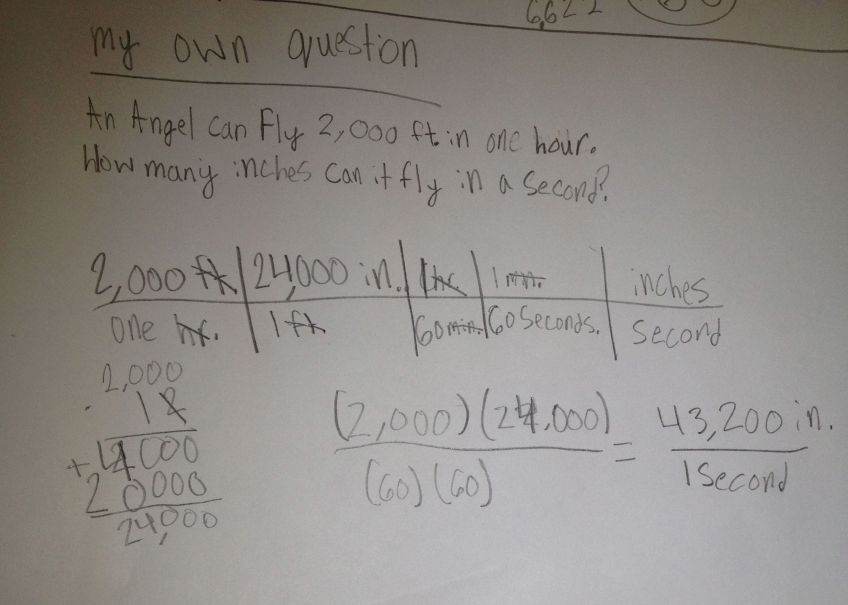 6,622
my own question
An Angel can fly 2,000 ft. in one hour.
How many inches can it fly in a second?
2,000 ft | 24,000 in. | 1 hr. | 1 min. | inches
one hr. | 1 ft | 60 min. | 60 Seconds. | Second
2,000
· 12
+ 4000
20000
24,000
(2,000) (24,000) = 43,200 in.
(60) (60) 1 Second